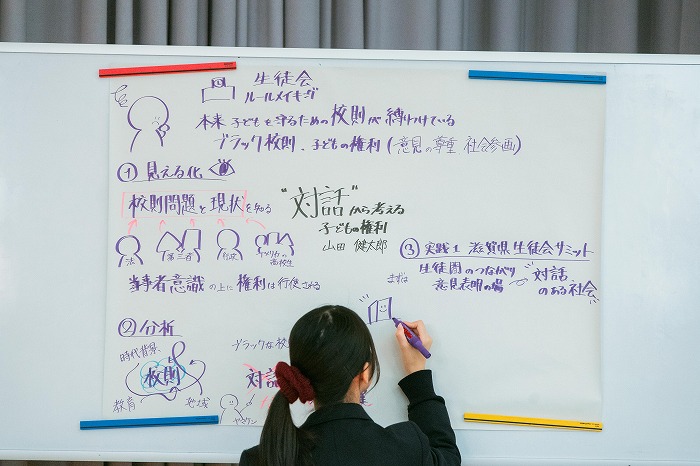 生徒会
ルールメイキング
本来 子どもを守るための校則が縛り付けている
ブラック校則、子どもの権利(意見の尊重 社会参画)
① 見える化
校則問題と現状を知る
法
第三者
行政
アメリカの高校生
当事者意識の上に権利は行使される
"対話"から考える
子どもの権利
山田 健太郎
② 分析
時代背景
校則
教育
地域
ブラックな校
対話
③ 実践1 滋賀県生徒会サミット
まずは
生徒間のつながり
意見表明の場
対話
のある社会